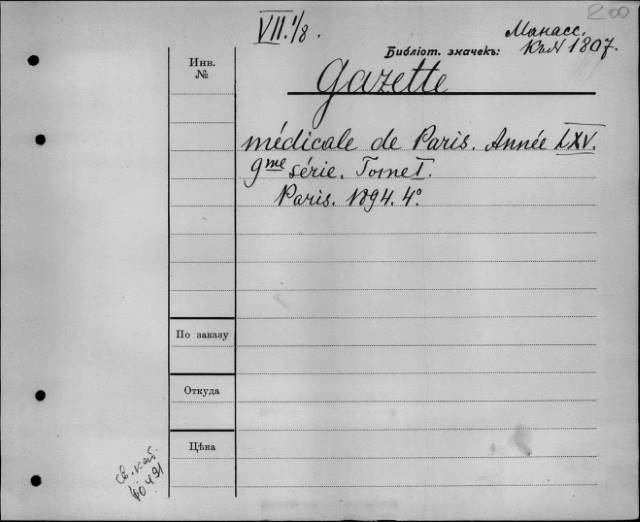 200
VII. 1/8.
Манасс.
Библіот. значекъ: К. 1807.
Инв. №
Gazette
médicale de Paris. Année LXV.
9me série. Tome I.
Paris. 1894. 4°
По заказу
Откуда
Цѣна
св. кат.
40491